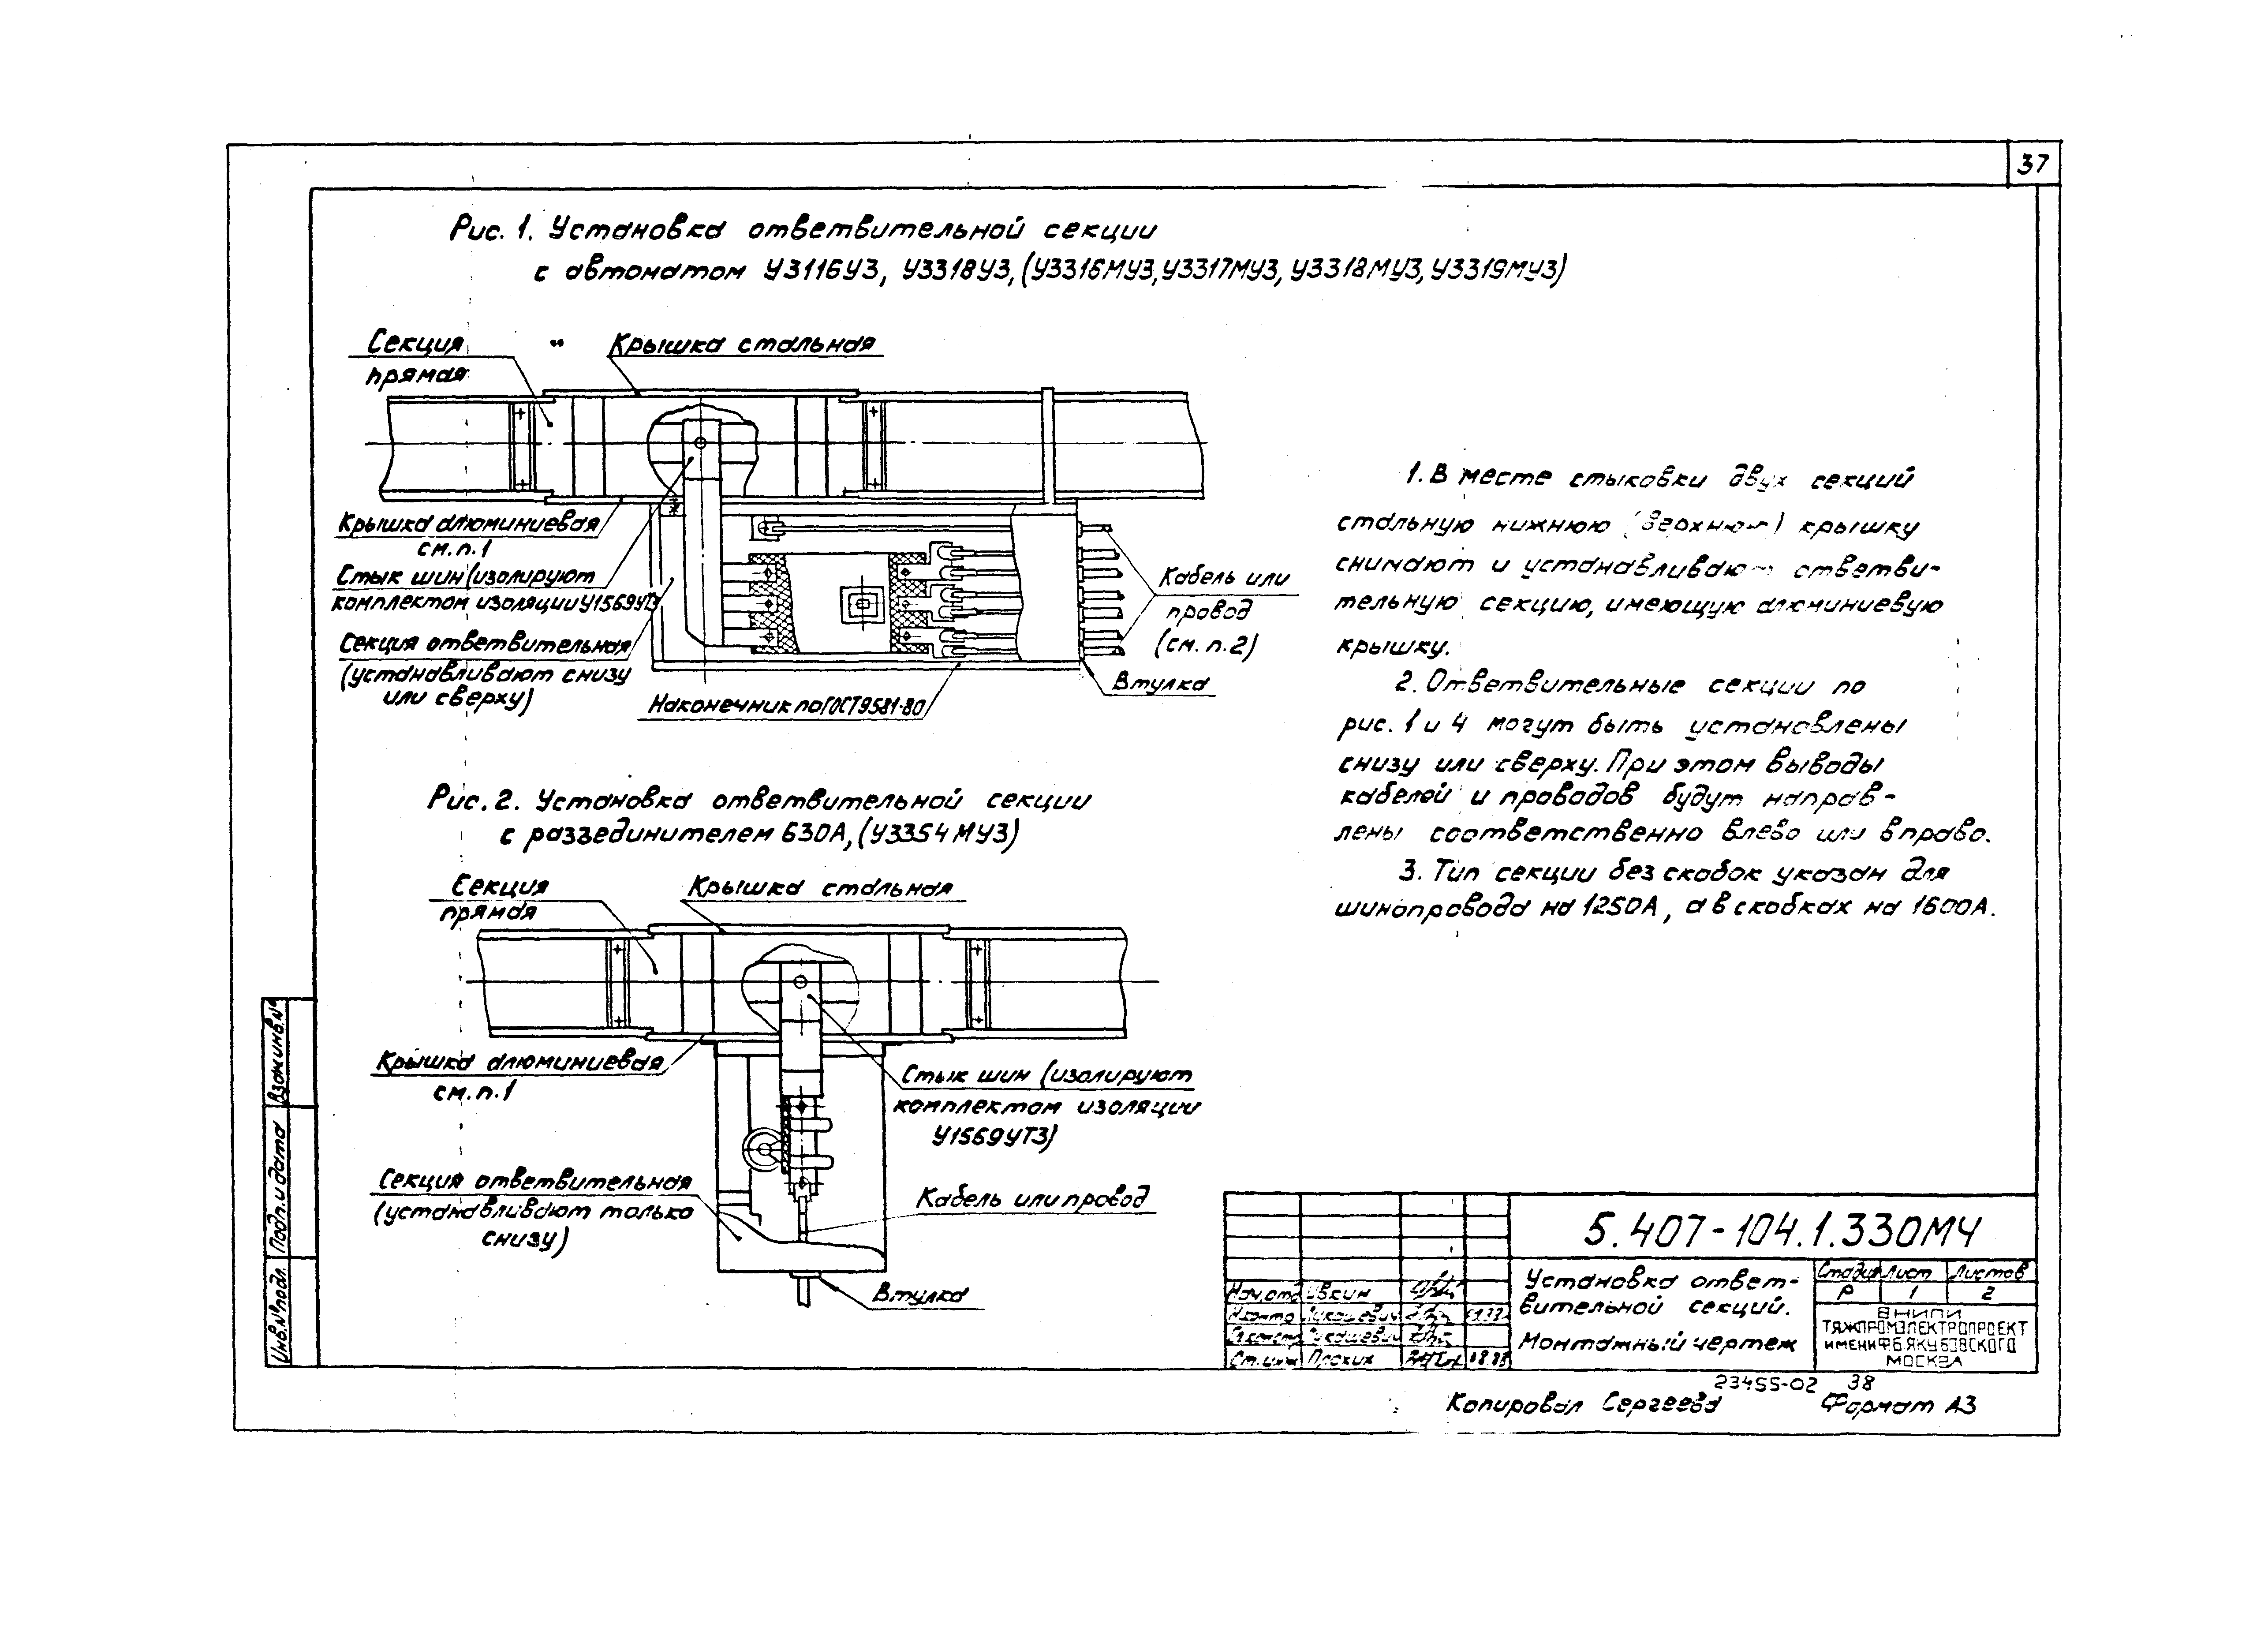 37
Рис. 1. Установка ответвительной секции
с автоматом У3116У3, У3318У3, (У3316МУ3, У3317МУ3, У3318МУ3, У3319МУ3)
Секция
прямая
Крышка стальная
Крышка алюминиевая
см. п. 1
Стык шин (изолируют
комплектом изоляции У1569УТ3
Секция ответвительная
(устанавливают снизу
или сверху)
Наконечник по ГОСТ 9581-80
Кабель или
провод
(см. п. 2)
Втулка
Рис. 2. Установка ответвительной секции
с разъединителем 630А, (У3354МУ3)
Секция
прямая
Крышка стальная
Крышка алюминиевая
см. п. 1
Стык шин (изолируют
комплектом изоляции
У1569УТ3)
Секция ответвительная
(устанавливают только
снизу)
Кабель или провод
Втулка
1. В месте стыковки двух секций
стальную нижнюю (верхнюю) крышку
снимают и устанавливают ответви-
тельную секцию, имеющую алюминиевую
крышку.
2. Ответвительные секции по
рис. 1 и 4 могут быть установлены
снизу или сверху. При этом выводы
кабелей и проводов будут направ-
лены соответственно влево или вправо.
3. Тип секции без скобок указан для
шинопровода на 1250А, а в скобках на 1600А.
Взам.инв.№
Подп. и дата
Инв.№ подл.
5.407-104.1.330МЧ
Установка ответ-
вительной секций.
Монтажный чертеж
Стадия Лист Листов
Р 1 2
ВНИПИ
ТЯЖПРОМЭЛЕКТРОПРОЕКТ
ИМЕНИ Ф.Б.ЯКУБОВСКОГО
МОСКВА
Нач.отд Ивкин
Н.контр Лукашевич
Гл.констр Лукашевич
Ст.инж
23455-02 38
Копировал Сергеева Формат А3